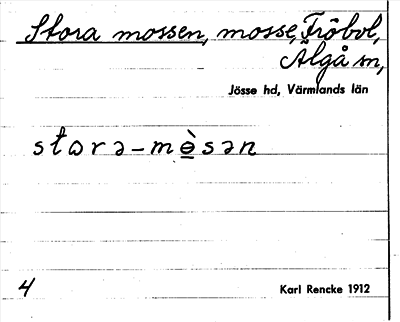 Stora mossen, mosse, Fröbol,
Älgå sn,
Jösse hd, Värmlands län
stωrə-mè̲sən
4
Karl Rencke 1912